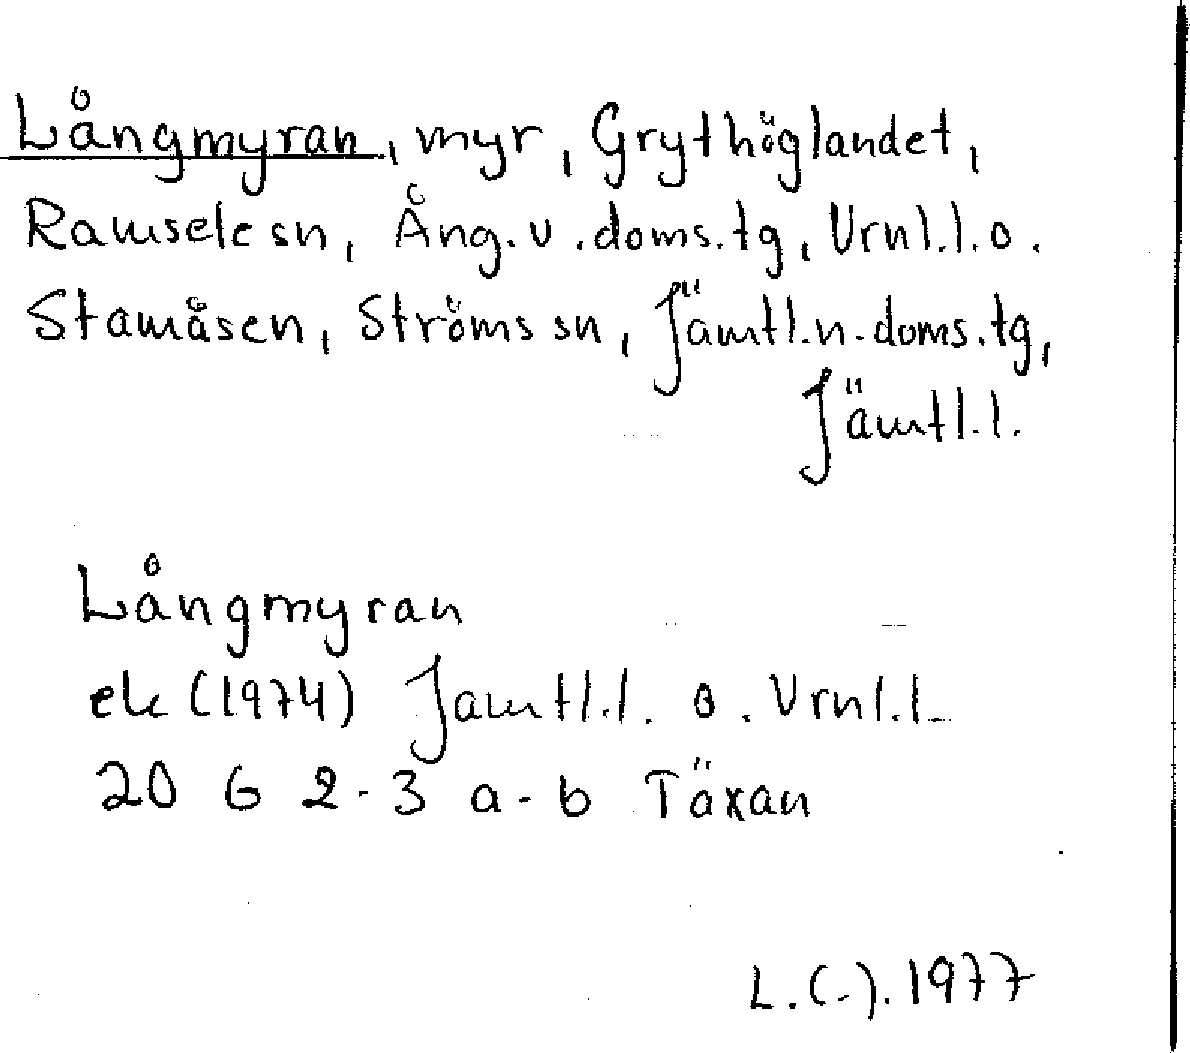 Långmyran, myr, Grythöglandet,
Ramsele sn, Ång. v. doms. tg, Vrnl. l. o.
Stamåsen, Ströms sn, Jämtl. n. doms. tg,
Jämtl. l.
Långmyran
ek (1974) Jämtl. l. o. Vrnl. l.
20 G 2-3 a-b Täxan
L.(-). 1977